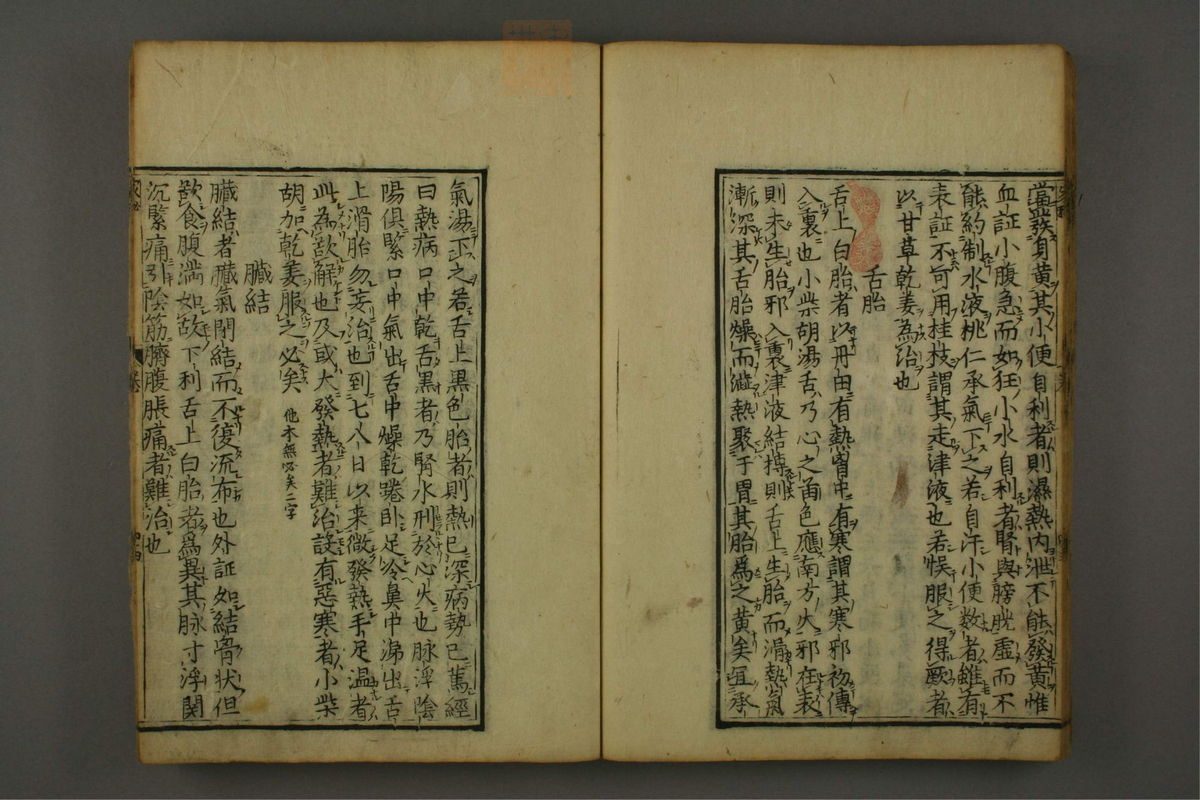 當發身黄其小便自利者則濕熱内泄不能發黄惟
血証小腹急而如狂小水自利者腎與膀胱虚而不
能約制水液桃仁承氣下之若自汗小便数者雖有
表証不可用桂枝謂其走津液也若悞服之得厥者
以甘草乾姜為治也
舌胎
舌上白胎者以丹田有熱胷中有寒謂其寒邪初傳
入裏也小柴胡湯舌乃心之苗色應南方火邪在表
則未生胎邪入裏津液結搏則舌上生胎而滑熱氣
漸深其舌胎燥而澁熱聚于胃其胎為之黄矣宜承
氣湯下之若舌上黒色胎者則熱已深病勢已篤經
曰熱病口中乾舌黒者乃腎水刑於心火也脉浮陰
陽俱緊口中氣出舌中燥乾踡卧足冷鼻中涕出舌
上滑胎勿妄治也到七八日以来微發熱手足温者
此為欲解也及或大發熱者難治設有惡寒者小柴
胡加乾姜服之必矣 他本無必矣二字
臓結
臓結者臓氣閉結而不復流布也外証如結胷状但
飲食腹満如故下利舌上白胎者為異其脉寸浮関
沉緊痛引陰筋臍腹脹痛者難治也